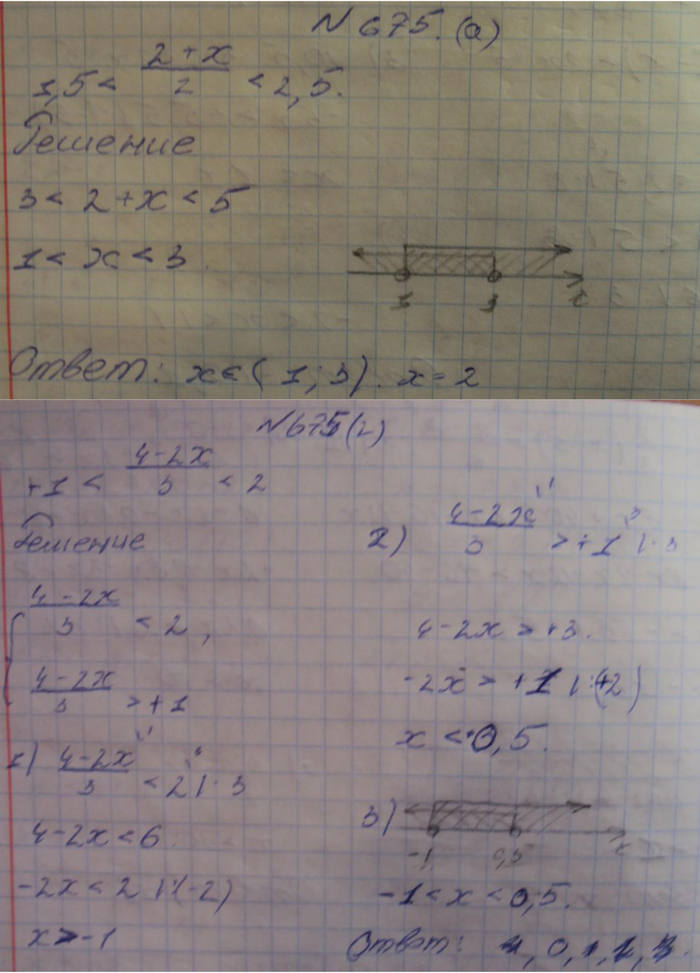 N 675. (а)
1,5 < 2+x/2 < 2,5.
Решение
3 < 2+x < 5
1 < x < 3.
1 3 x
Ответ: x ∈ (1; 3). x = 2
N 675 (г)
+1 < 4-2x/3 < 2
Решение
{ 4-2x/3 < 2,
4-2x/3 > +1
1) 4-2x/3 < 2 | · 3
4-2x < 6
-2x < 2 | :(-2)
x > -1
2) 4-2x/3 > +1 | · 3
4-2x > +3.
x < 0,5.
3)
-1 0,5 x
-1 < x < 0,5.
Ответ: 0